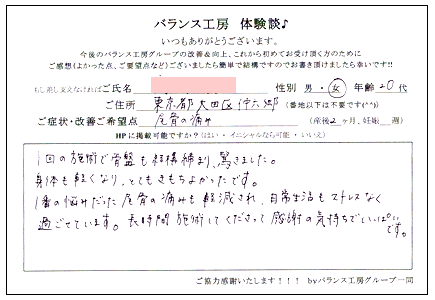 バランス工房 体験談♪
いつもありがとうございます。
今後のバランス工房グループの改善&向上、これから初めてお受け頂く方のために
ご感想(よかった点、ご要望点など)ございましたら簡単で結構ですのでお書き頂けましたら幸いです!!
もし差し支えなければご氏名 性別 男・女 年齢 20代
ご住所 東京都大田区仲六郷 (番地以下は不要です(^^))
ご症状・改善ご希望点 尾骨の痛み (産後2ヶ月、妊娠 週)
HPに掲載可能ですか?(はい・イニシャルなら可能・いいえ)
1回の施術で骨盤も結構締まり、驚きました。
身体も軽くなり、とてもきもちよかったです。
1番の悩みだった尾骨の痛みも軽減され、日常生活もストレスなく
過ごせています。長時間施術してくださって感謝の気持ちでいっぱい
です。
ご協力感謝いたします!!! byバランス工房グループ一同